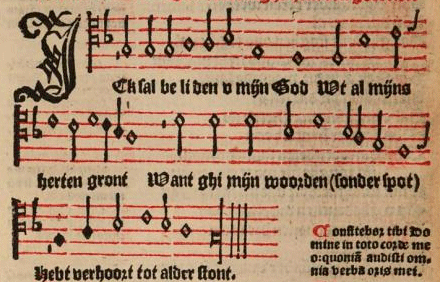 ICk sal be li den v mijn God Wt al mijns
herten gront Want ghi mijn woorden (sonder spot)
Hebt verhoort tot alder stont.
Confitebor tibi Do
mine in toto corde me
o: quoniā audisti om-
nia verba oris mei.